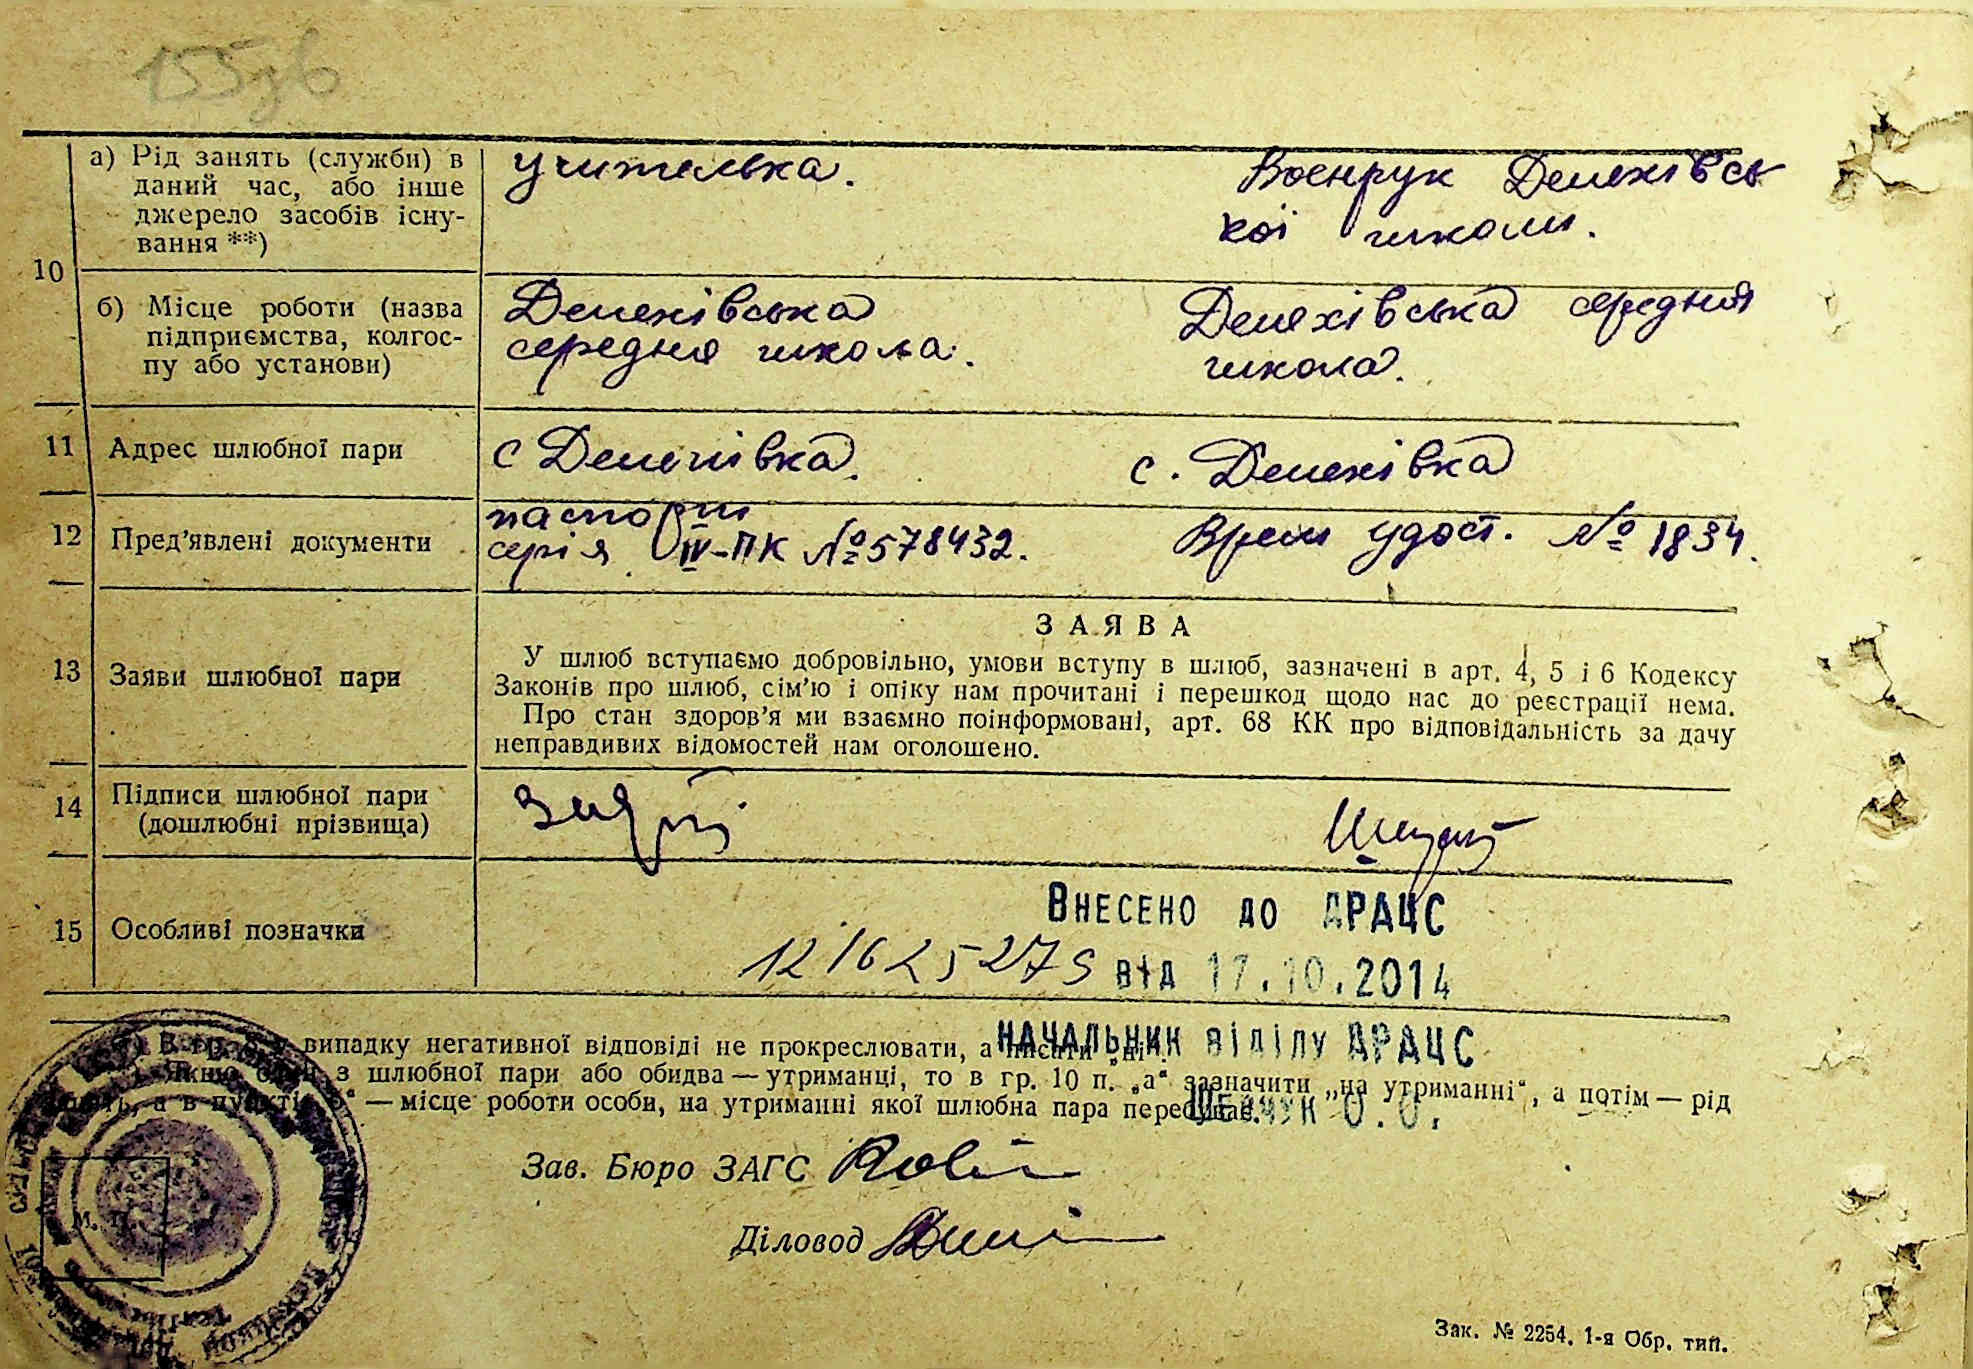 155зв
а) Рід занять (служби) в
даний час, або інше
джерело засобів існу-
вання **)
учителька.
Воєнрук Делехівсь
кої школи.
10
б) Місце роботи (назва
підприємства, колгос-
пу або установи)
Делехівська
середня школа.
Делехівська середня
школа.
11 Адрес шлюбної пари
с Делехівка.
с. Делехівка
12 Пред'явлені документи
паспорт
серія IV-ПК №578432.
Врем удост. № 1834.
13 Заяви шлюбної пари
ЗАЯВА
У шлюб вступаємо добровільно, умови вступу в шлюб, зазначені в арт. 4, 5 і 6 Кодексу
Законів про шлюб, сім'ю і опіку нам прочитані і перешкод щодо нас до реєстрації нема.
Про стан здоров'я ми взаємно поінформовані, арт. 68 КК про відповідальність за дачу
неправдивих відомостей нам оголошено.
14 Підписи шлюбної пари
(дошлюбні прізвища)
15 Особливі позначки
Внесено до ДРАЦС
121625279 від 17.10.2014
НАЧАЛЬНИК ВІДІЛУ ДРАЦС
Шевчук О.О.
В гр. у випадку негативної відповіді не прокреслювати, а писати „ні“.
Якщо один з шлюбної пари або обидва — утриманці, то в гр. 10 п. „а“ зазначити „на утриманні“, а потім — рід
а в пункті — місце роботи особи, на утриманні якої шлюбна пара перебуває.
Зав. Бюро ЗАГС
Діловод
М. П.
Зак. № 2254. 1-я Обр. тип.